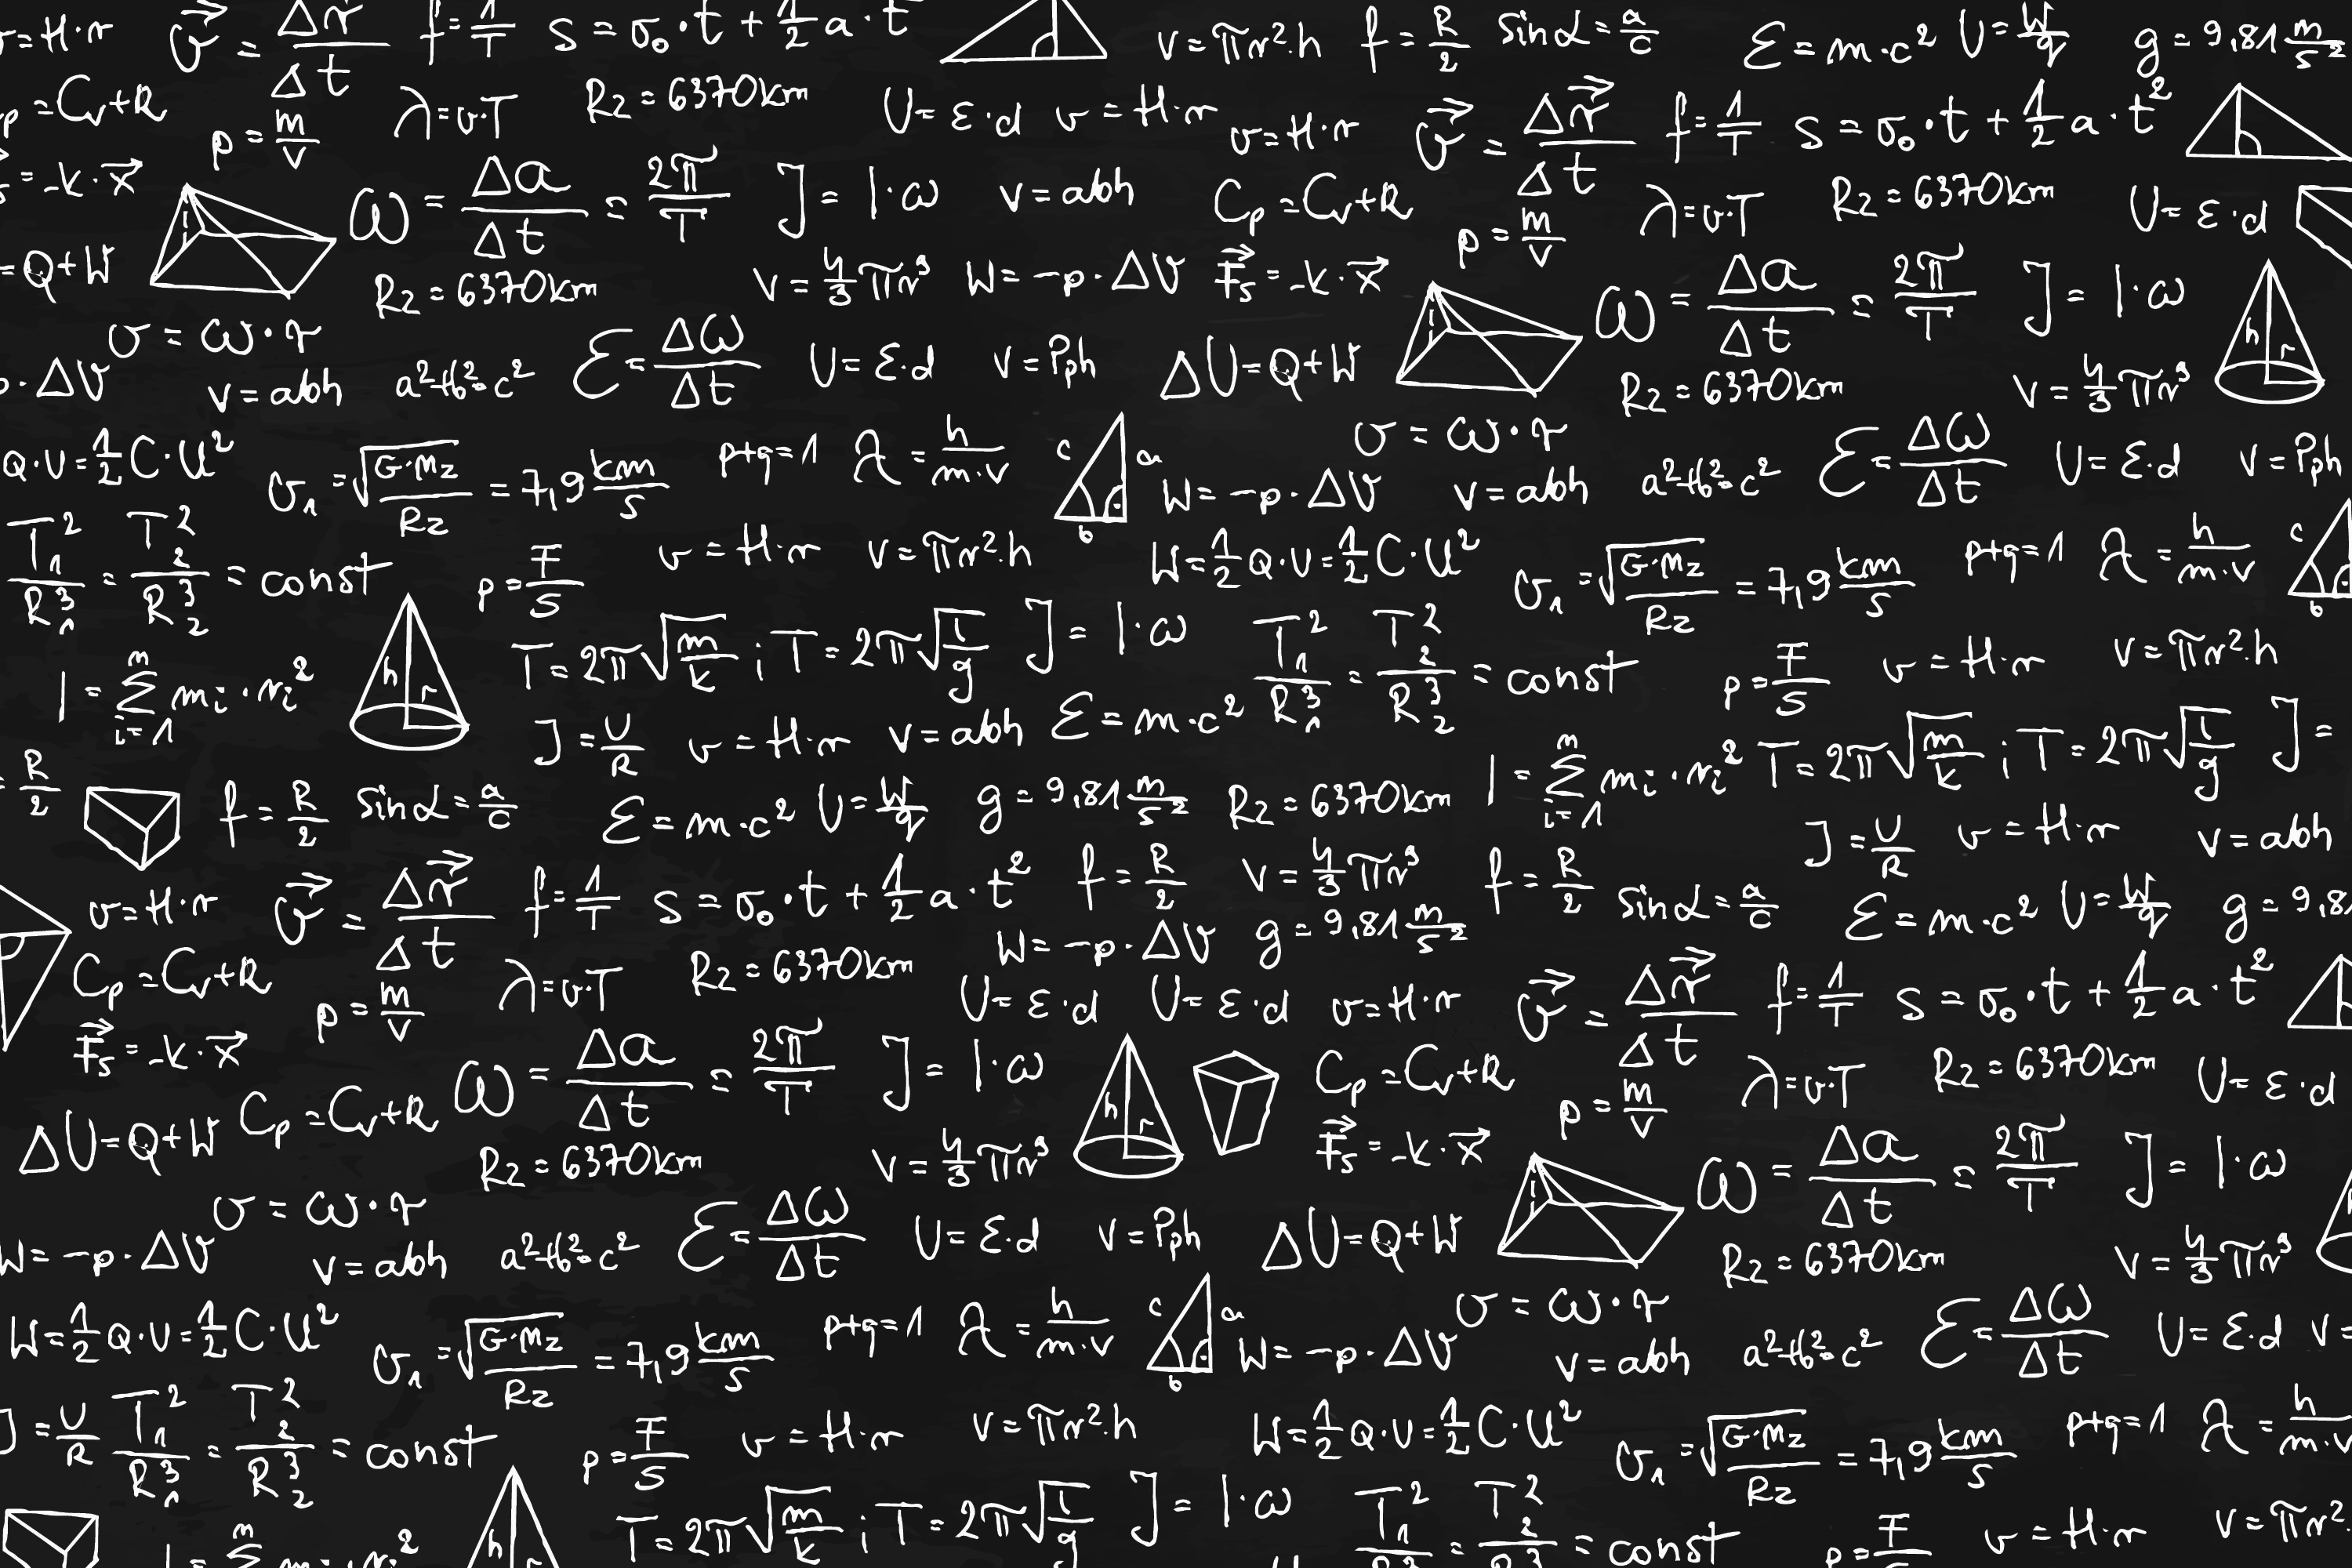 v=H·r v⃗ = Δr⃗/Δt f=1/T s=v₀·t+1/2a·t v=πr²·h f=R/2 sinα=a/c E=m·c² U=W/q g=9,81 m/s²
Cp=Cv+R ρ=m/v λ=v·T Rz=6370km U=E·d v=H·r v=H·r v⃗=Δr⃗/Δt f=1/T s=v₀·t+1/2a·t²
=-k·x⃗ ω=Δa/Δt=2π/T J=I·ω v=abh Cp=Cv+R ρ=m/v λ=v·T Rz=6370km U=E·d
=Q+W Rz=6370km v=4/3πr³ W=-p·ΔV F⃗s=-k·x⃗ ω=Δa/Δt=2π/T J=I·ω h r
v=ω·r
·ΔV v=abh a²+b²=c² E=Δω/Δt U=E·d v=Pph ΔU=Q+W Rz=6370km v=4/3πr³
v=ω·r
Q·U=1/2C·U² v₁=√G·Mz/Rz=7,9km/s p+q=1 λ=h/m·v c a b W=-p·ΔV v=abh a²+b²=c² E=Δω/Δt U=E·d v=Pph
T₁²/R₁³=T₂²/R₂³=const p=F/S v=H·r v=πr²·h W=1/2Q·U=1/2C·U² v₁=√G·Mz/Rz=7,9km/s p+q=1 λ=h/m·v c b
I=Σmi·ri² n i=1 h r T=2π√m/k ; T=2π√l/g J=I·ω T₁²/R₁³=T₂²/R₂³=const p=F/S v=H·r v=πr²·h
J=U/R v=H·r v=abh E=m·c² I=Σmi·ri² n i=1 T=2π√m/k ; T=2π√l/g J=
=R/2 f=R/2 sinα=a/c E=m·c² U=W/q g=9,81 m/s² Rz=6370km J=U/R v=H·r v=abh
v=H·r v⃗=Δr⃗/Δt f=1/T s=v₀·t+1/2a·t² f=R/2 v=4/3πr³ f=R/2 sinα=a/c E=m·c² U=W/q g=9,8
Cp=Cv+R ρ=m/v λ=v·T Rz=6370km W=-p·ΔV g=9,81 m/s²
U=E·d U=E·d v=H·r v⃗=Δr⃗/Δt f=1/T s=v₀·t+1/2a·t²
F⃗s=-k·x⃗ ω=Δa/Δt=2π/T J=I·ω h r Cp=Cv+R ρ=m/v λ=v·T Rz=6370km U=E·d
ΔU=Q+W Cp=Cv+R Rz=6370km v=4/3πr³ F⃗s=-k·x⃗ ω=Δa/Δt=2π/T J=I·ω
v=ω·r
W=-p·ΔV v=abh a²+b²=c² E=Δω/Δt U=E·d v=Pph ΔU=Q+W Rz=6370km v=4/3πr³
v=ω·r
W=1/2Q·U=1/2C·U² v₁=√G·Mz/Rz=7,9km/s p+q=1 λ=h/m·v c a b W=-p·ΔV v=abh a²+b²=c² E=Δω/Δt U=E·d v=
J=U/R T₁²/R₁³=T₂²/R₂³=const p=F/S v=H·r v=πr²·h W=1/2Q·U=1/2C·U² v₁=√G·Mz/Rz=7,9km/s p+q=1 λ=h/m·v
n h r T=2π√m/k ; T=2π√l/g J=I·ω T₁²=T₂²=const p=F v=H·r v=πr²